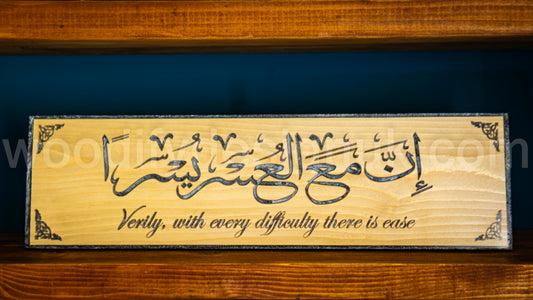 إِنَّ مَعَ الْعُسْرِ يُسْرًا
Verily, with every difficulty there is ease